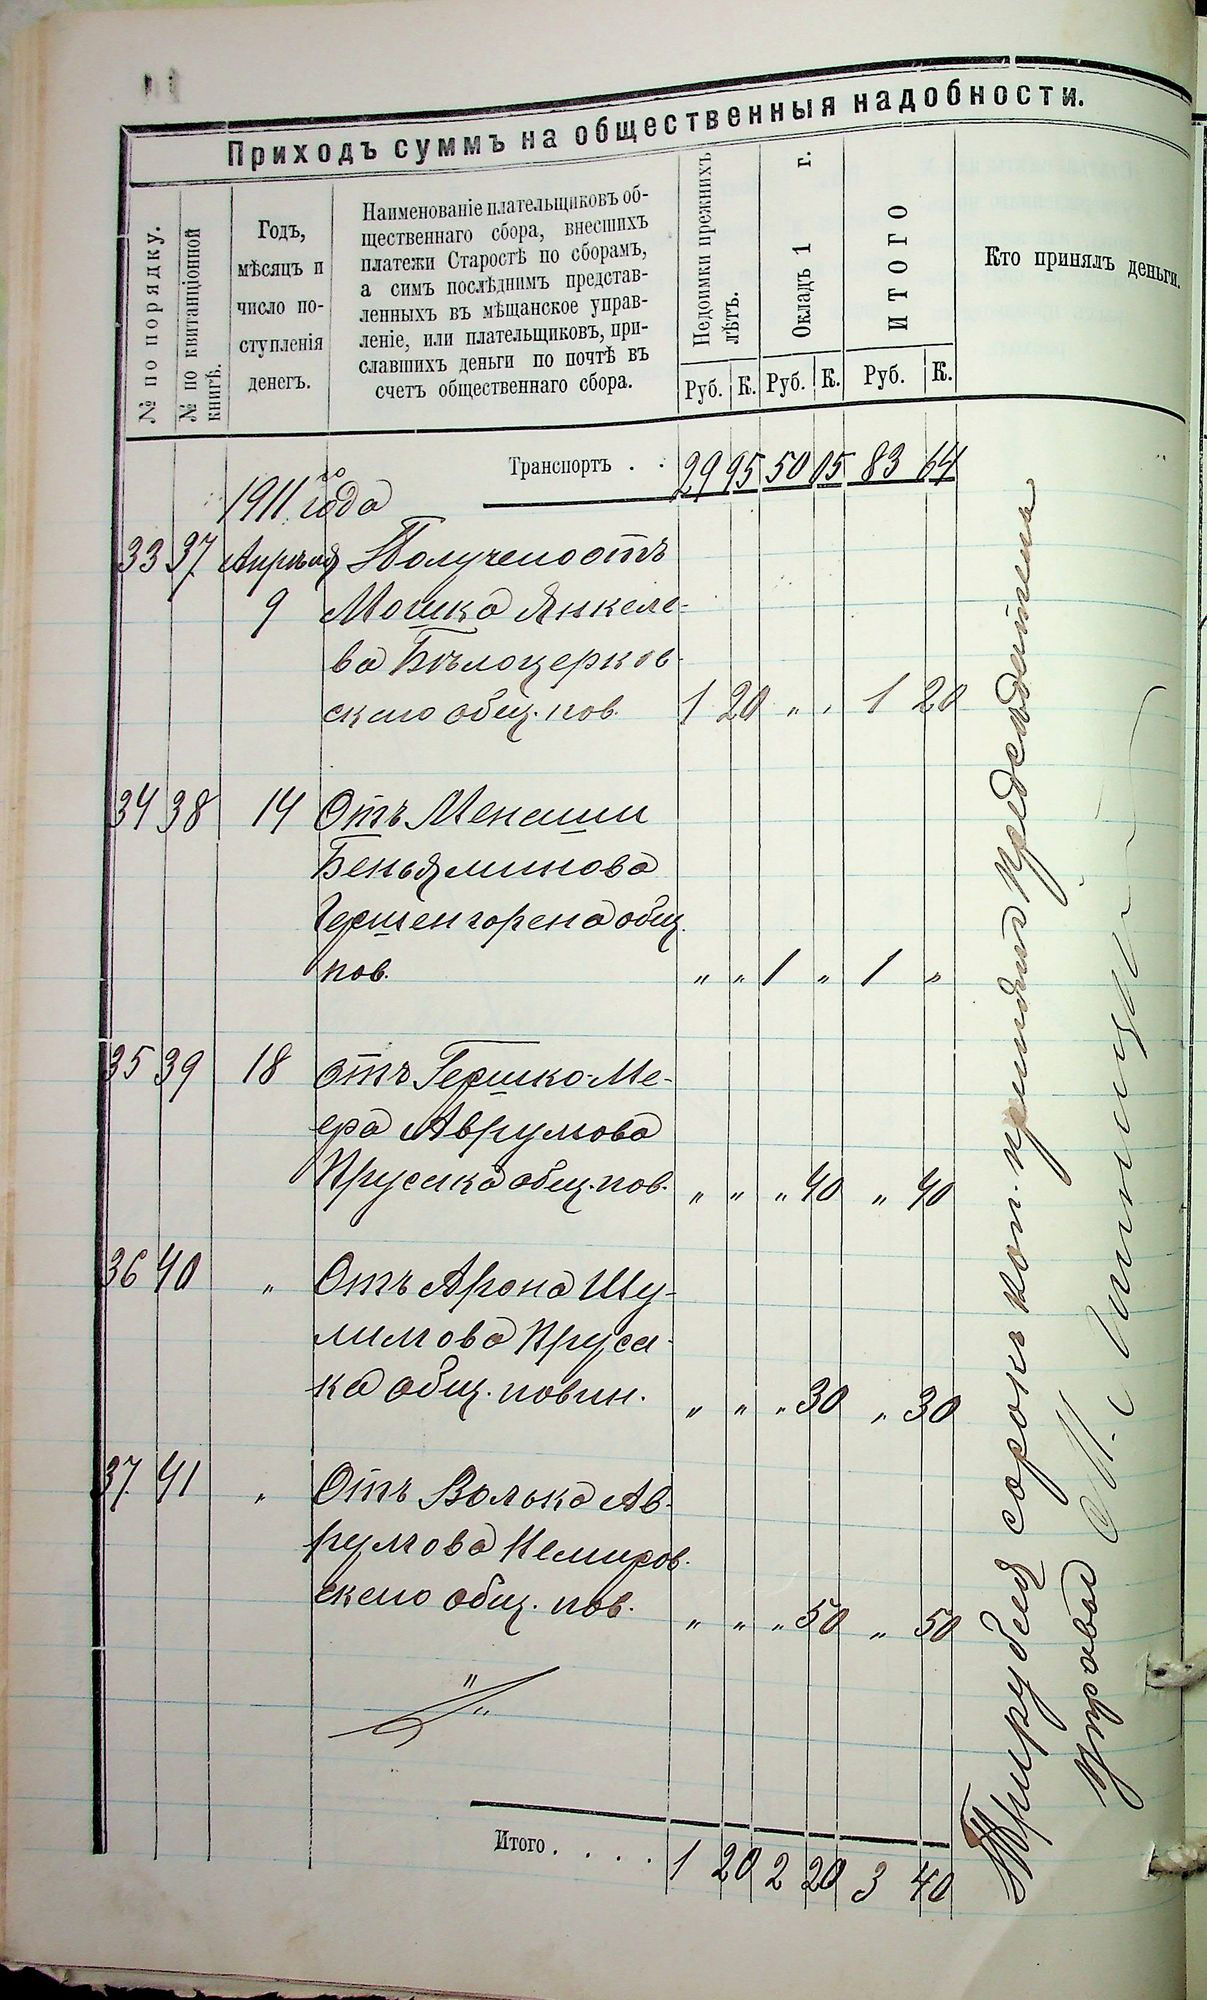 Приходъ суммъ на общественныя надобности.
№ по порядку.
№ по квитанціонной
книгѣ.
Годъ,
мѣсяцъ и
число по-
ступленія
денегъ.
Наименованіе плательщиковъ об-
щественнаго сбора, внесшихъ
платежи Старостѣ по сборамъ,
а симъ послѣднимъ представ-
ленныхъ въ мѣщанское управ-
леніе, или плательщиковъ, при-
славшихъ деньги по почтѣ въ
счетъ общественнаго сбора.
Недоимки прежнихъ
лѣтъ.
Окладъ 1 г.
ИТОГО
Руб. К. Руб. К. Руб. К.
Кто принялъ деньги.
Транспортъ . . 29 95 50 05 83 64
1911 го года
33 37 Апрѣля Получено отъ
9 Мошка Янкеле-
ва Бѣлоцерков-
скаго общ. пов. 1 20 „ „ 1 20
34 38 14 Отъ Менаши
Беньяминова
Гершенгорена общ.
пов. „ „ 1 „ 1 „
35 39 18 отъ Гершко-Ме-
ера Аврумова
Прусака общ. пов. „ „ „ 40 „ 40
36 40 „ Отъ Арона Шу-
лимова Пруса-
ка общ. повин. „ „ „ 30 „ 30
37 41 „ Отъ Волька Ав-
румова Немиров-
скаго общ. пов. „ „ „ 50 „ 50
Итого . . . . 1 20 2 20 3 40
Три рубля сорокъ коп. принялъ Председатель
управы М.